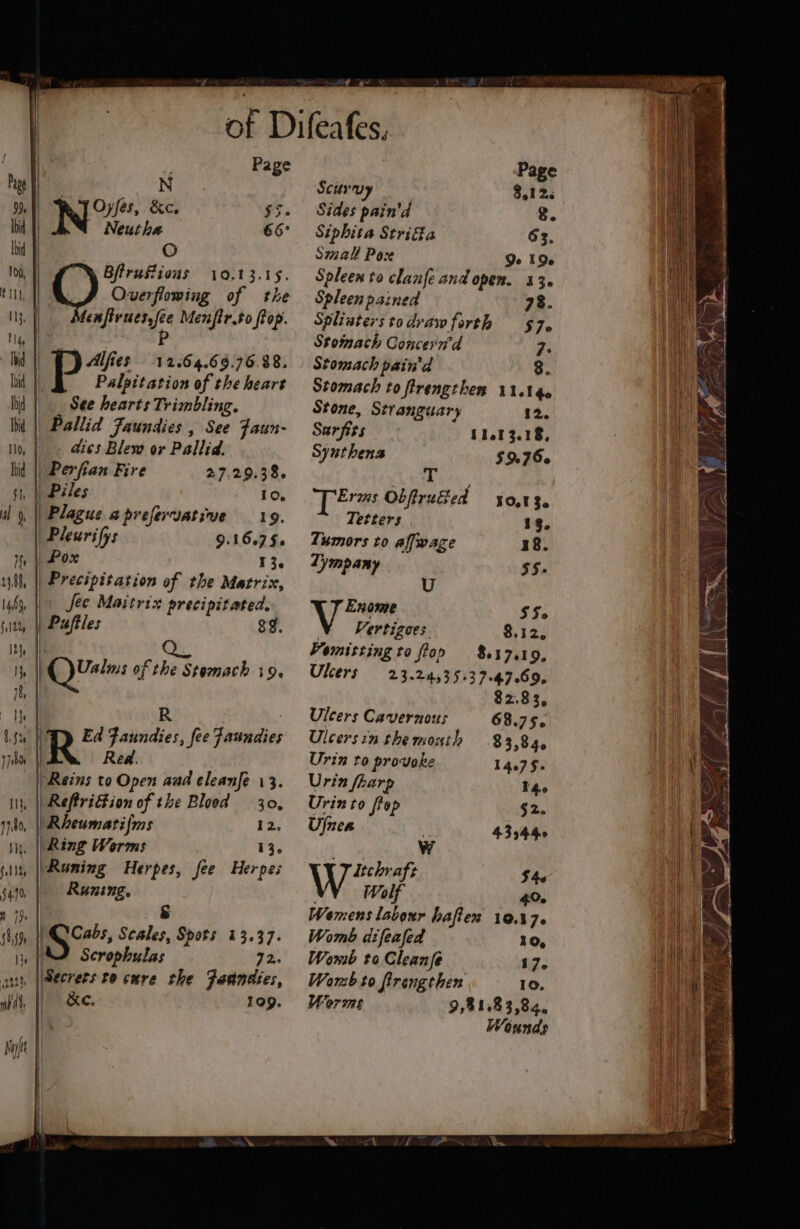 of Difeafes,
Page
N
NOyfes, &c. 55.
Neutha 66
O
OBftructions 10.13.15.
Overflowing of the
Menftrues,fee Menftr.to ftop.
P
PAlfies 12.64.69.76.88.
Palpitation of the heart
See hearts Trimbling.
Pallid Jaundies, See Jaun-
dies Blew or Pallid.
Perfian Fire 27.29.38.
Piles 10.
Plague a prefervative 19.
Pleurifys 9.16.75.
Pox 13.
Precipitation of the Matrix,
fee Maitrix precipitated.
Puftles 88.
Q
QUalms of the Stomach 19.
R
REd Jaundies, fee Jaundies
Red.
Reins to Open and cleanfe 13.
Reftriction of the Blood 30,
Rheumatifms 12.
Ring Worms 13.
Runing Herpes, fee Herpes
Runing.
S
SCabs, Scales, Spots 13.37.
Scrophulas 72.
Secrets to cure the Jaundies,
&c. 109.
Page
Scurvy 8,12.
Sides pain'd 8.
Siphita Stricta 63.
Small Pox 9. 19.
Spleen to clanfe and open. 13.
Spleen pained 78.
Splinters to draw forth 57.
Stomach Concern'd 7.
Stomach pain'd 8.
Stomach to ftrengthen 11.14.
Stone, Stranguary 12.
Surfits 11.13.18.
Synthena 59.76.
T
TErms Obftructed 10.13.
Tetters 18.
Tumors to affwage 18.
Tympany 55.
U
VEnome 55.
Vertigoes 8.12.
Vomitting to ftop 8.17.19.
Ulcers 23.24,35.37.47.69.
82.83,
Ulcers Cavernous 68.75.
Ulcers in the mouth 83,84.
Urin to provoke 14.75.
Urin fharp 14.
Urin to ftop 52.
Ufnea 43,44.
W
WItchraft 54.
Wolf 40.
Womens labour haften 10.17.
Womb difeafed 10,
Womb to Cleanfe 17.
Womb to ftrengthen 10.
Worms 9,81.83,84.
Wounds